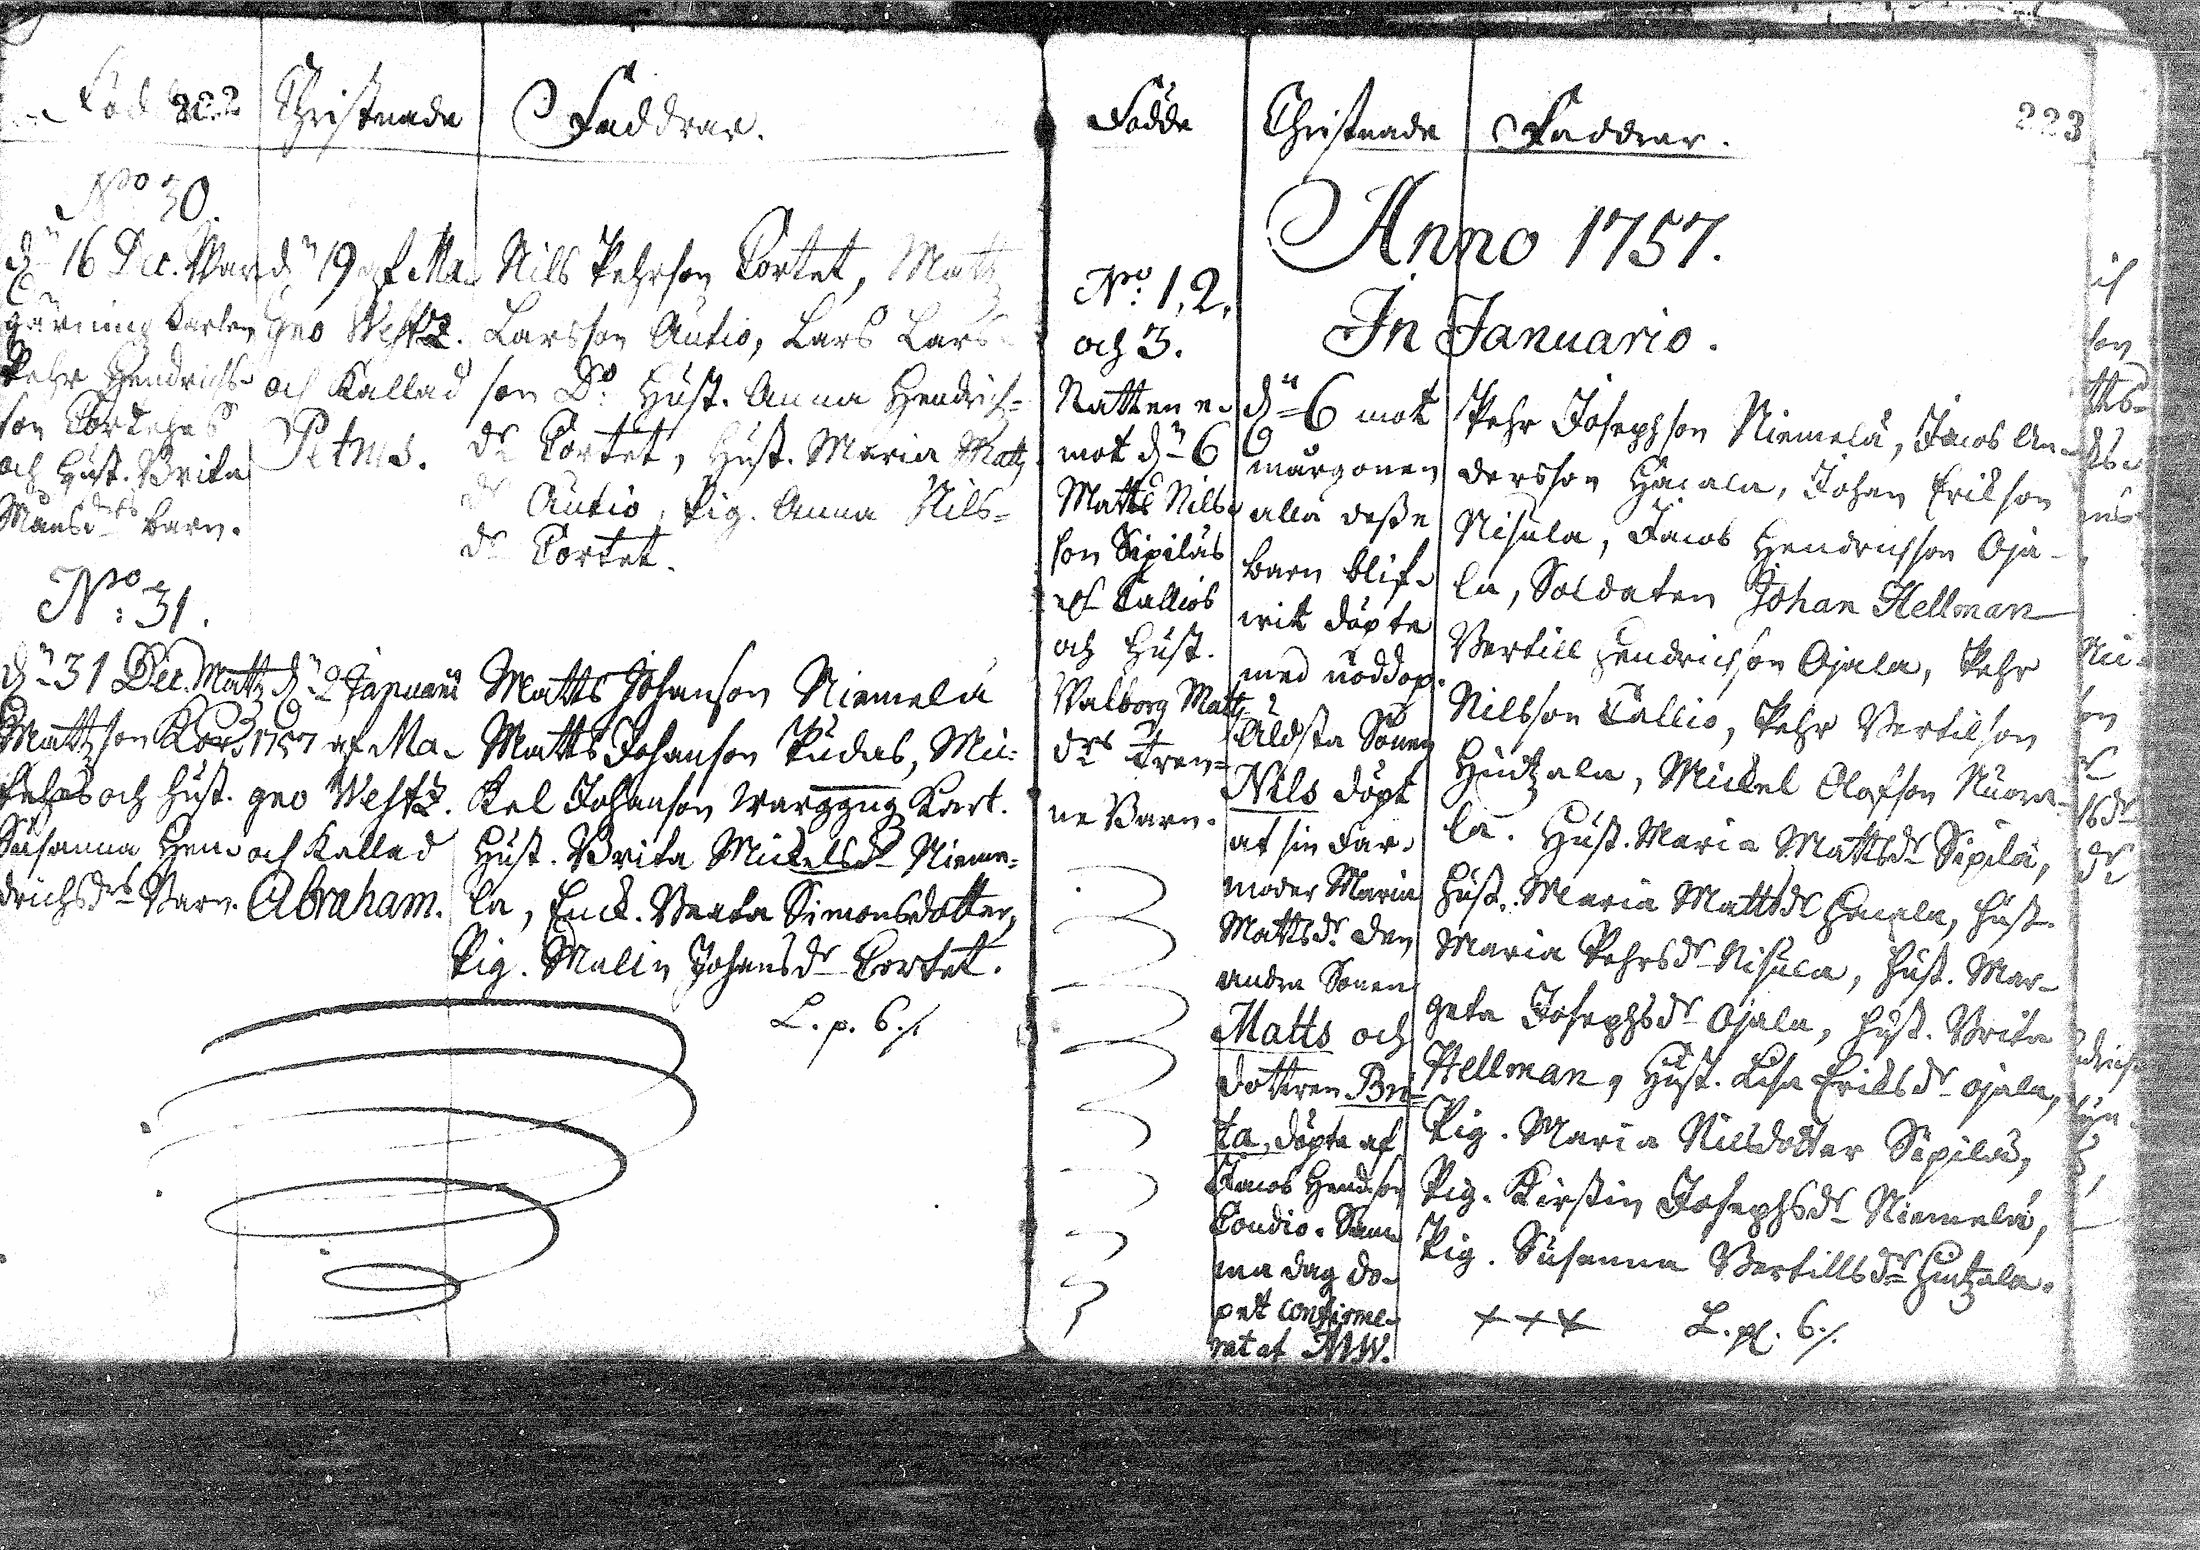 Födde 222
Christnade
Faddrar.
No 30.
dn 16 Dec. War-
gärning Karlen
Pehr Hendrichs-
son Cortehes
och Hust. Brita
Månsdrs barn.
dn 19 af Ma-
geo Westz.
och Kallad
Petrus.
Nils Pehrson Cortet, Matz
Larsson Autio, Lars Lars-
son Do. Hust. Anna Hendrich-
dr Cortet, Hust. Maria Matz
dr Autio, Pig. Anna Nils-
dr Cortet.
No: 31.
dn 31 Dec. Matz
Mattzson
och Hust.
Susanna Hen-
drichsdrs Barn.
dn 2 Januarii
1757 af Ma-
geo Westz.
och Kallad
Abraham.
Matts Johanson Niemelä
Matts Johanson Pudas, Mi-
kel Johanson Kart.
Hust. Brita Mickelsdr Nieme-
la, Enck. Beata Simonsdotter,
Pig. Malin Johansdr Cortet.
L. p. 6 ./.
Födde
Christnade
Faddrar.
223
Anno 1757.
In Januario.
No: 1, 2,
och 3.
Natten e-
mot dn 6
Matts Nils-
son Sipiläs
Callios
och Hust.
Walborg Matts
drs Tren-
ne Barn.
dn 6 mot
margonen
alla desse
barn blif-
wit döpte
med nöddop.
Äldsta Sonen
Nils döpt
af sin Far-
moder Maria
Mattsdr. den
andra Sonen
Matts och
dottren Bri-
ta, döpte af
Jacob Hendrson
Tondio. Sam-
ma dag do-
pet confirme-
rat af MW.
Pehr Josephson Niemelä, Jacob An-
dersson Haiala, Johan Erikson
Nisula, Jacob Hendrichson Oja-
la, Soldaten Johan Hellman
Bertill Hendrichson Ojala, Pehr
Nilsson Callio, Pehr Bertilson
Hintzala, Mickel Olofson Nuora-
la. Hust. Maria Mattsdr Sipilä,
Hust. Maria Mattsdr, Hust.
Maria Pehrsdr Nisula, Hust. Mar-
geta Josephsdr Ojala, Hust. Brita
Hellman, Hust. Lisa Eriksdr Ojala,
Pig. Maria Nilsdotter Sipilä,
Pig. Kirstin Josephsdr Niemelä,
Pig. Susanna Bertillsdr Hintzala.
+++ L. pl. 6 ./.